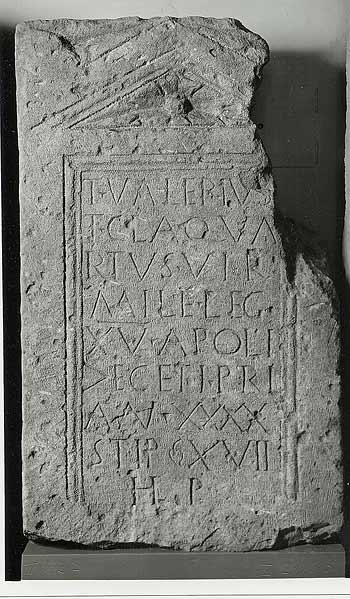 T·VALERIVS
T·CLA·QVA
RTVS·VIR
MILE·LEG
XV·APOLI
>EGETI·PRI
AN·XXXX
STIP XVII
H P